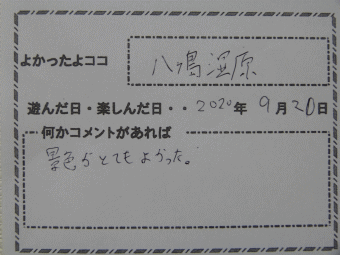 よかったよココ 八島湿原
遊んだ日・楽しんだ日・・2020年 9月20日
何かコメントがあれば
景色がとてもよかった。